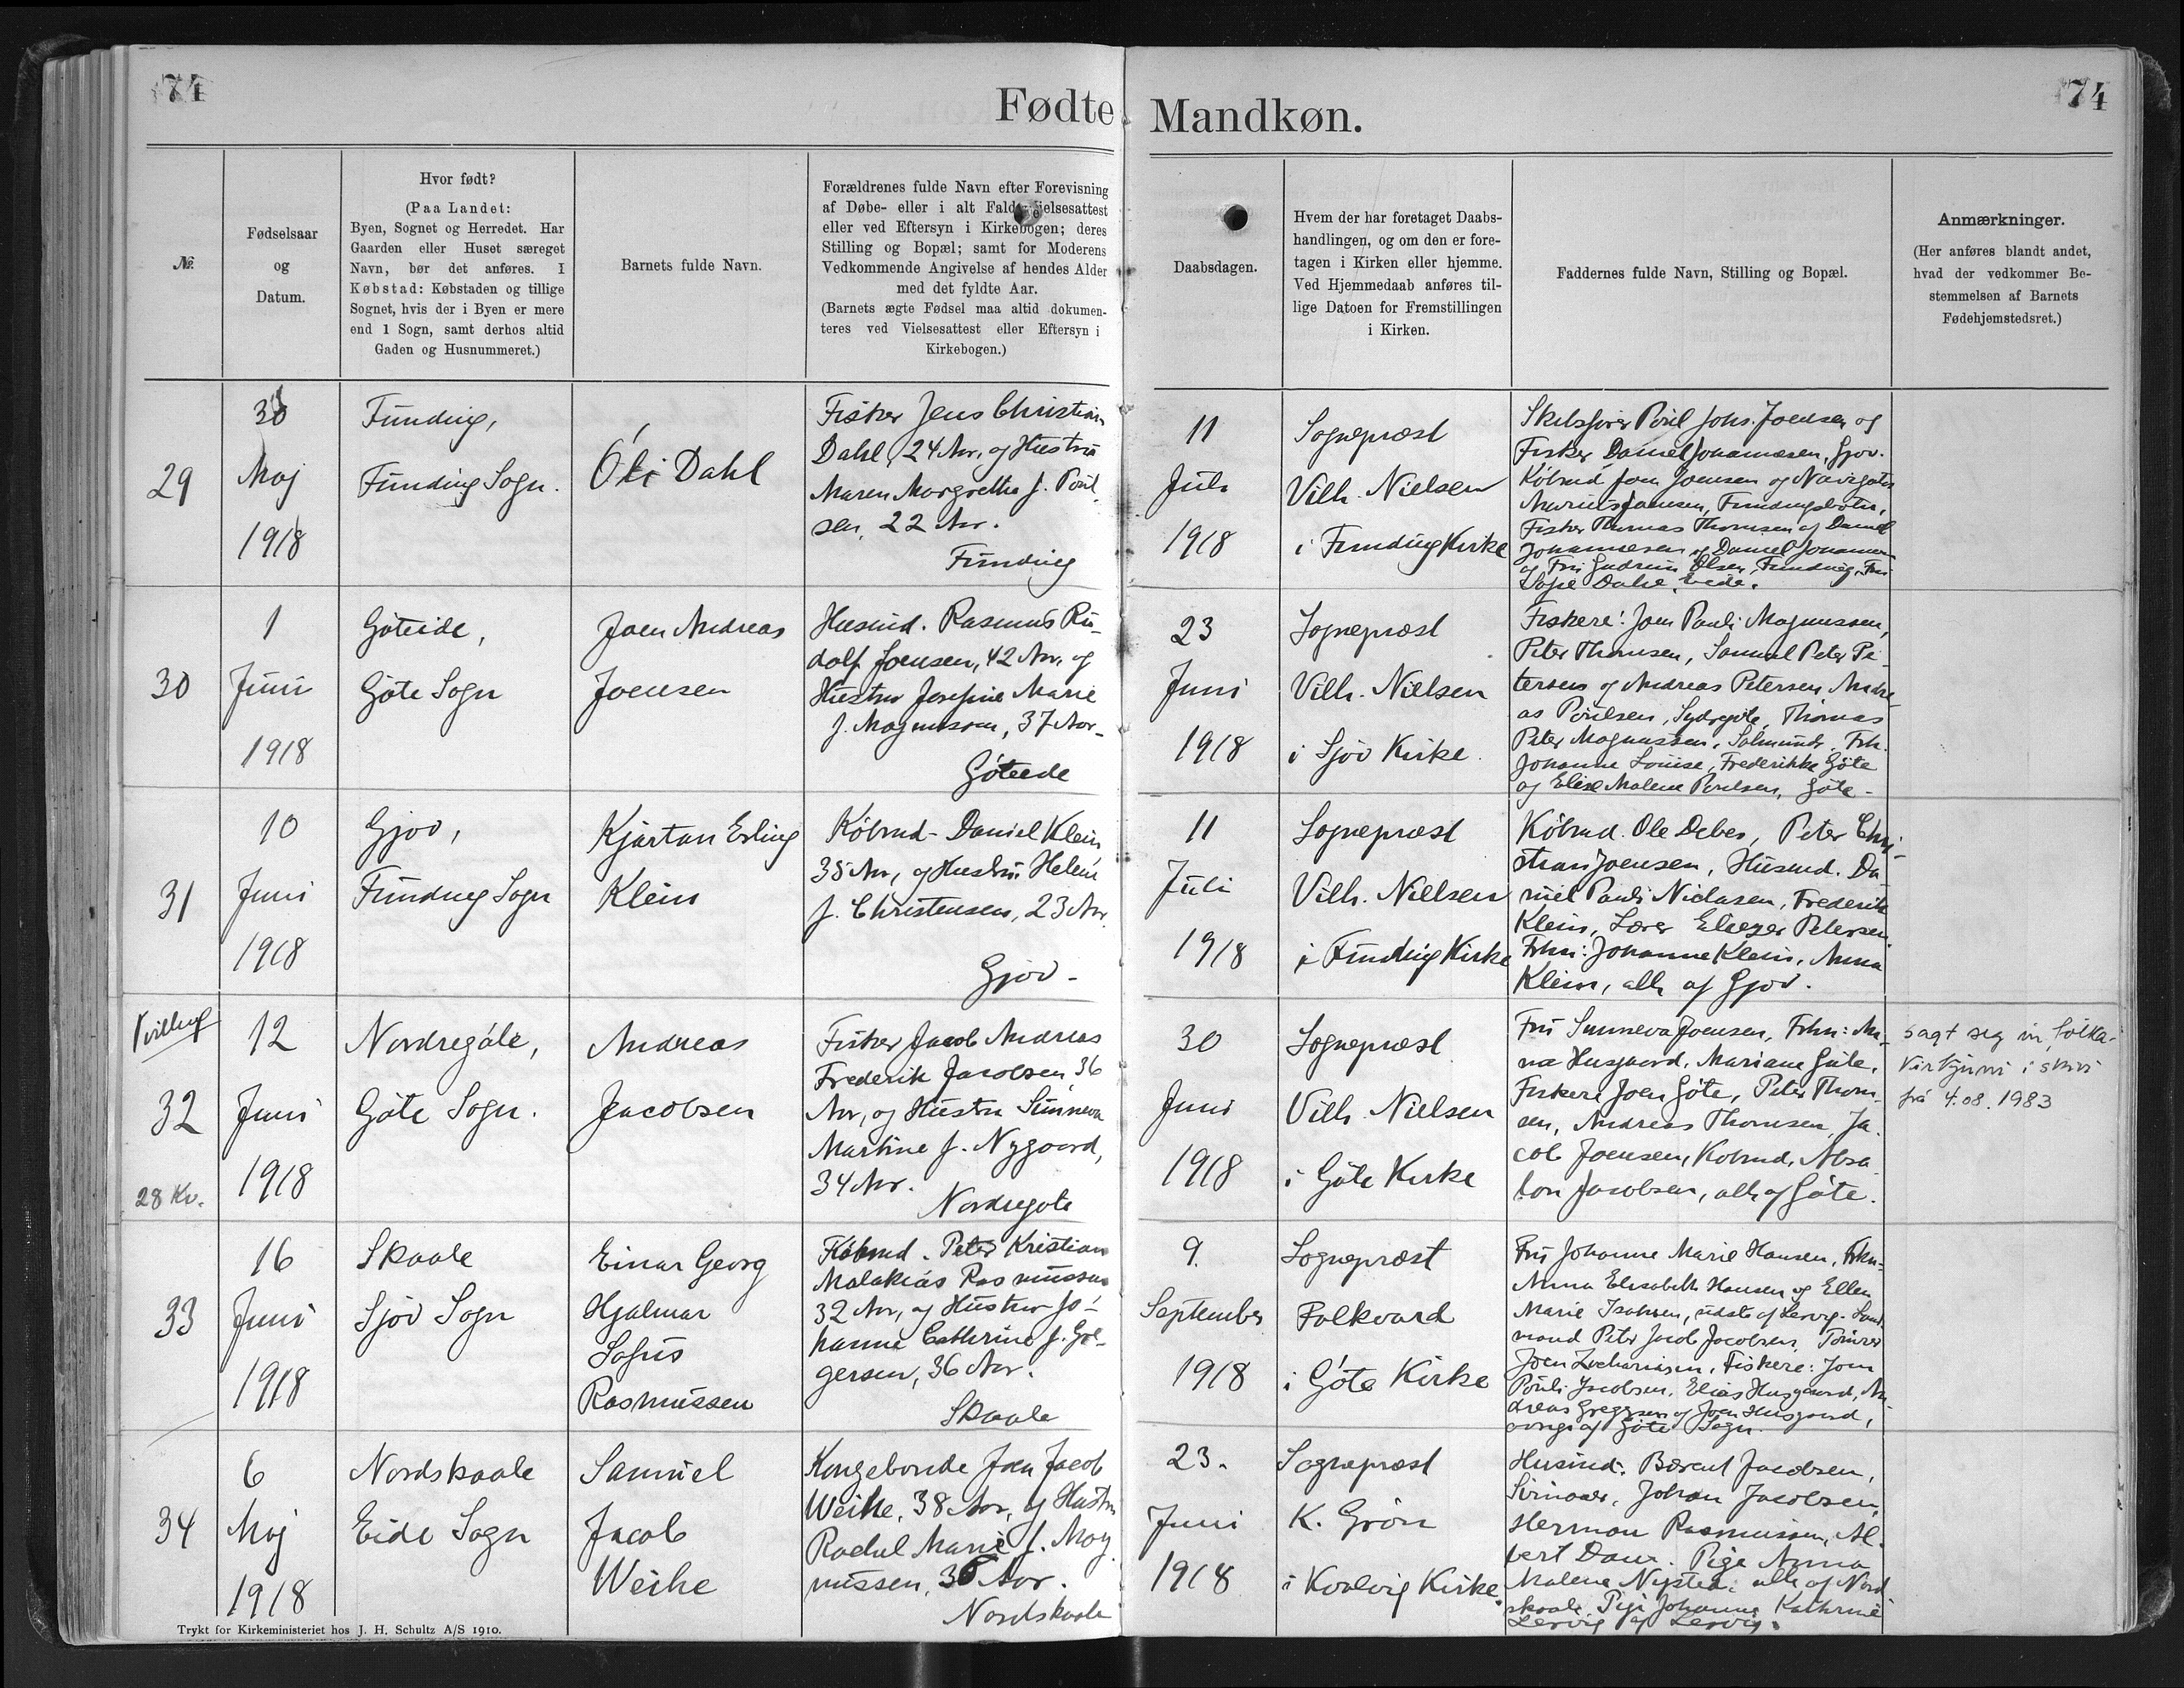 74
Fødte Mandkøn.
74
№.
Fødselsaar
og
Datum.
Hvor født?
(Paa Landet:
Byen, Sognet og Herredet. Har
Gaarden eller Huset særeget
Navn, bør det anføres. I
Købstad: Købstaden og tillige
Sognet, hvis der i Byen er mere
end 1 Sogn, samt derhos altid
Gaden og Husnummeret.)
Barnets fulde Navn.
Forældrenes fulde Navn efter Forevisning
af Døbe- eller i alt Fald
eller ved Eftersyn i Kirkebogen; deres
Stilling og Bopæl; samt for Moderens
Vedkommende Angivelse af hendes Alder
med det fyldte Aar.
(Barnets ægte Fødsel maa altid dokumen-
teres ved Vielsesattest eller Eftersyn i
Kirkebogen.)
Daabsdagen.
Hvem der har foretaget Daabs-
handlingen, og om den er fore-
tagen i Kirken eller hjemme.
Ved Hjemmedaab anføres til-
lige Datoen for Fremstillingen
i Kirken.
Faddernes fulde Navn, Stilling og Bopæl.
Anmærkninger.
(Her anføres blandt andet,
hvad der vedkommer Be-
stemmelsen af Barnets
Fødehjemstedsret.)
29
Maj
1918
Funding,
Funding Sogn.
Óli Dahl
Fisker Jens Christian
Dahl, 24 Aar, og Hustru
Maren Margrethe f. Poul-
sen, 22 Aar.
Funding
11
Juli
1918
Sognepræst
Vilh. Nielsen
i Funding Kirke
Skibsfører Poul Johs. Joensen og
Fisker Daniel Johannesen, Gjov.
Købmd Jon Joensen og Navigatør
Marius Joensen, Fundingsbotn,
Fisker Thomas Thomsen og Daniel
Johannesen og Daniel
og Fru Gudrun Olsen, Funding, Fru
30
1
Juni
1918
Göteeide,
Göte Sogn
Joen Andreas
Joensen
Husmd. Rasmus Ru-
dolf Joensen, 42 Aar, og
Hustru Josefine Marie
f. Magnussen, 37 Aar
23
Juni
1918
Sognepræst
Vilh. Nielsen
i Sjov Kirke
Fiskere: Joen Pauli Magnussen,
Peter Thomsen, Samuel Peter Pe-
tersen og Andreas Petersen, Andre-
as Poulsen, Sydregöte, Thomas
Peter Magnussen, Frk.
Johanne Louise, Frederikke Göte
og Elise Malene Poulsen, Göte
31
10
Juni
1918
Gjov,
Funding Sogn
Kjartan Erling
Klein
Købmd. Daniel Klein
35 Aar, og Hustru Helene
f. Christensen, 23 Aar
Gjov
11
Juli
1918
Sognepræst
Vilh. Nielsen
i Funding Kirke
Købmd. Ole Debes, Peter Chri-
stian Joensen, Husmd. Da-
niel Pauli Niclasen, Frederik
Klein, Lærer Eliezer Petersen.
Frkn: Johanne Klein, Anna
Klein, alle af Gjov.
Tvilling
32
28 Kv.
12
Juni
1918
Nordregöte,
Göte Sogn.
Andreas
Jacobsen
Fisker Jacob Andreas
Frederik Jacobsen, 36
Aar, og Hustru Sunneva
Martine f. Nygaard,
34 Aar.
Nordregöte
30
Juni
1918
Sognepræst
Vilh. Nielsen
i Göte Kirke
Fru Sunneva Joensen, Frkn: An-
na Husgaard, Mariane Göte,
Fiskere Joen Göte, Peter Thom-
sen, Andreas Thomsen, Ja-
cob Joensen, Købmd. Absa-
lon Jacobsen, alle af Göte.
sagt seg úr fólka-
kirkjuni i skriv
frá 4.08.1983
33
16
Juni
1918
Skaale
Sjov Sogn
Einar Georg
Hjalmar
Sofus
Rasmussen
Købmd. Peter Kristian
Malakias Rasmussen
32 Aar, og Hustru Jo-
hanne Cathrine f.
gersen, 36 Aar.
Skaale
9.
September
1918
Sognepræst
Falkvard
i Göte Kirke
Fru Johanne Marie Hansen, Frkn
Anna Elisabeth Hansen og Ellen
Marie Isaksen, sidste af Lervig.
mand Peter Jacob Jacobsen, Tømrer
Joen Zachariasen, Fiskere: Joen
Pouli Jacobsen, Elias Husgaard, An-
dreas Greggersen og Joen Husgaard,
øvrige af Göte Sogn.
34
6
Maj
1918
Nordskaale
Eide Sogn
Samuel
Jacob
Weihe
Kongebonde Joen Jacob
Weihe, 38 Aar, og Hustru
Rachel Marie f. Mag-
nussen, 36 Aar.
Nordskaale
23.
Juni
1918
Sognepræst
K. Grön
i Kvalvig Kirke.
Husmd: Bærent Jacobsen,
Johan Jacobsen,
Herman Rasmussen, Al-
bert Dam. Pige Anna
Malene Nysted; alle af Nord-
skaale. Pige Johanna Kathrine
Lervig af Lervig.
Trykt for Kirkeministeriet hos J. H. Schultz A/S 1910.